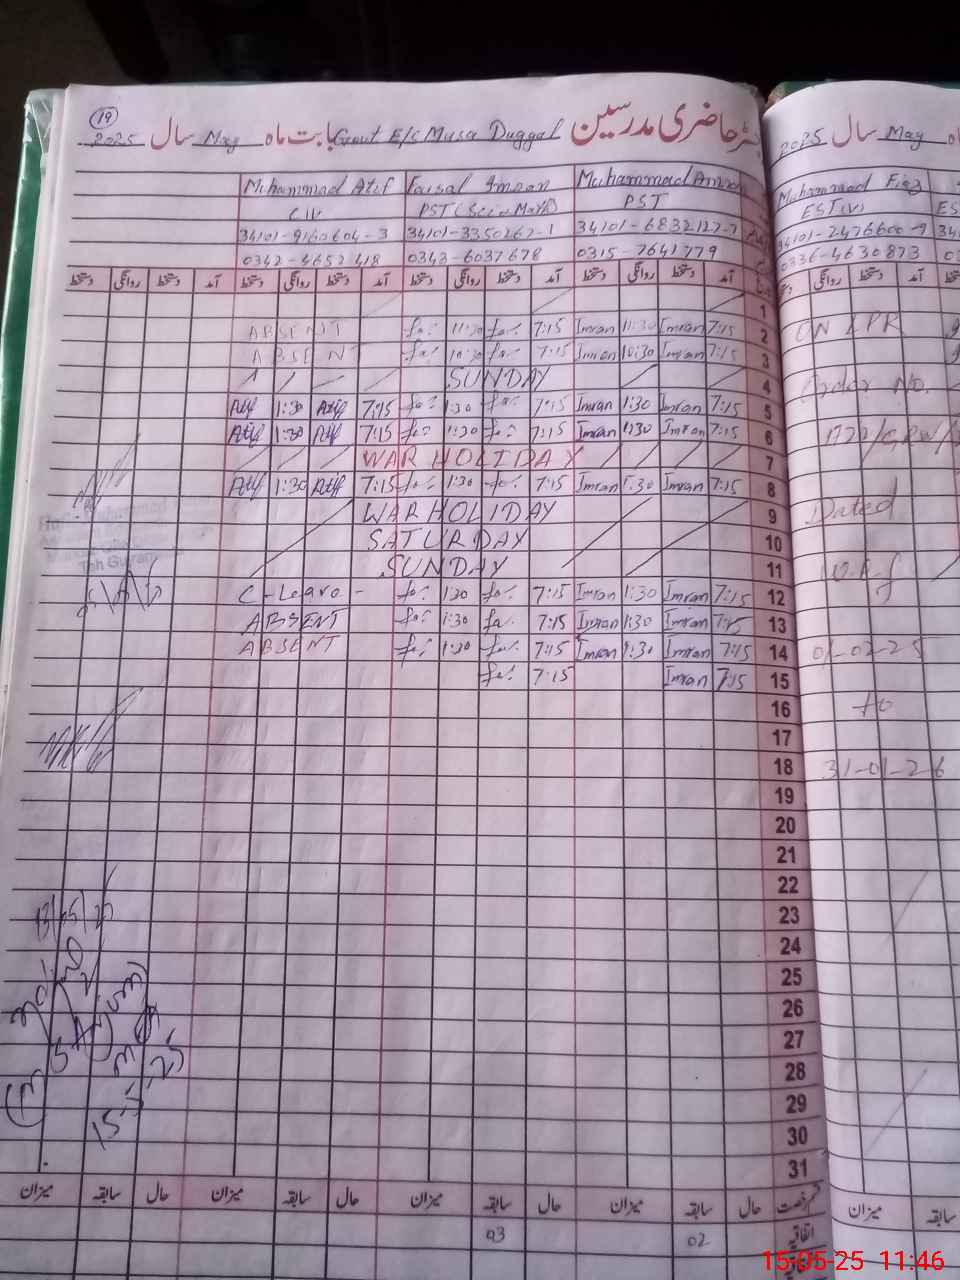 19
2025 سال May بابت ماہ Govt E/S Musa Duggal رجسٹر حاضری مدرسین
Muhammad Atif Faisal Imran Muhammad Imran
CIV PST (Sci-Math) PST
34101-9160604-3 34101-3350262-1 34101-6832127-7
0342-4652418 0343-6037678 0315-7641779
دستخط روانگی دستخط آمد دستخط روانگی دستخط آمد دستخط روانگی دستخط آمد دستخط روانگی دستخط آمد
1
ABSENT fai 11:30 fai 7:15 Imran 11:30 Imran 7:15 2
ABSENT fai 10:30 fai 7:15 Imran 10:30 Imran 7:15 3
SUNDAY 4
Atif 1:30 Atif 7:15 fai 1:30 fai 7:15 Imran 1:30 Imran 7:15 5
Atif 1:30 Atif 7:15 fai 1:30 fai 7:15 Imran 1:30 Imran 7:15 6
WAR HOLIDAY 7
Atif 1:30 Atif 7:15 fai 1:30 fai 7:15 Imran 1:30 Imran 7:15 8
WAR HOLIDAY 9
SATURDAY 10
SUNDAY 11
C-Leave - fai 1:30 fai 7:15 Imran 1:30 Imran 7:15 12
ABSENT fai 1:30 fai 7:15 Imran 1:30 Imran 7:15 13
ABSENT fai 1:30 fai 7:15 Imran 1:30 Imran 7:15 14
fai 7:15 Imran 7:15 15
16
17
18
19
20
21
22
23
24
25
26
27
28
29
30
31
میزان سابقہ حال میزان سابقہ حال میزان سابقہ حال میزان سابقہ حال قسم رخصت
03 02 اتفاقیہ
13/05/25
15-5-25
2025 سال May
Muhammad Fiaz
EST(V)
34101-2476600-9
0336-4630873
روانگی دستخط آمد
ON LPR
Order No.
Dated
W.e.f
01-02-25
to
31-01-26
میزان سابقہ
15-05-25 11:46